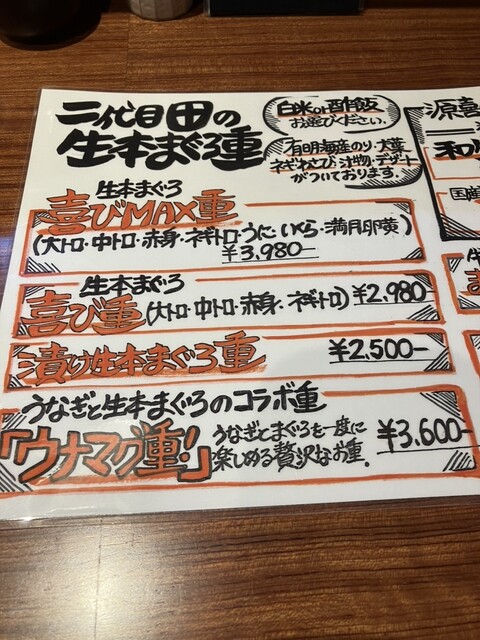 二代目田の
生本まぐろ重
白米or酢飯
お選びください。
有明海産のり・大葉
ネギ・わさび・汁物・デザート
がついております。
生本まぐろ
喜びMAX重
(大トロ・中トロ・赤身・ネギトロ・うに・いくら・満月卵黄)
¥3,980-
生本まぐろ
喜び重(大トロ・中トロ・赤身・ネギトロ) ¥2,980-
漬け生本まぐろ重 ¥2,500-
うなぎと生本まぐろのコラボ重
「ウナマグ重!」
うなぎとまぐろを一度に
楽しめる贅沢なお重。
¥3,600-
源喜
国産